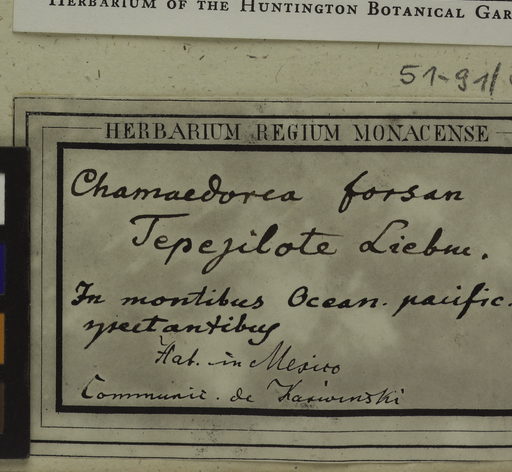 HERBARIUM OF THE HUNTINGTON BOTANICAL GAR
51-91/
HERBARIUM REGIUM MONACENSE
Chamaedorea forsan
Tepejilote Liebm.
In montibus Ocean. pacific.
spectantibus
Hab. in Mexico
Communic. de Karwinski